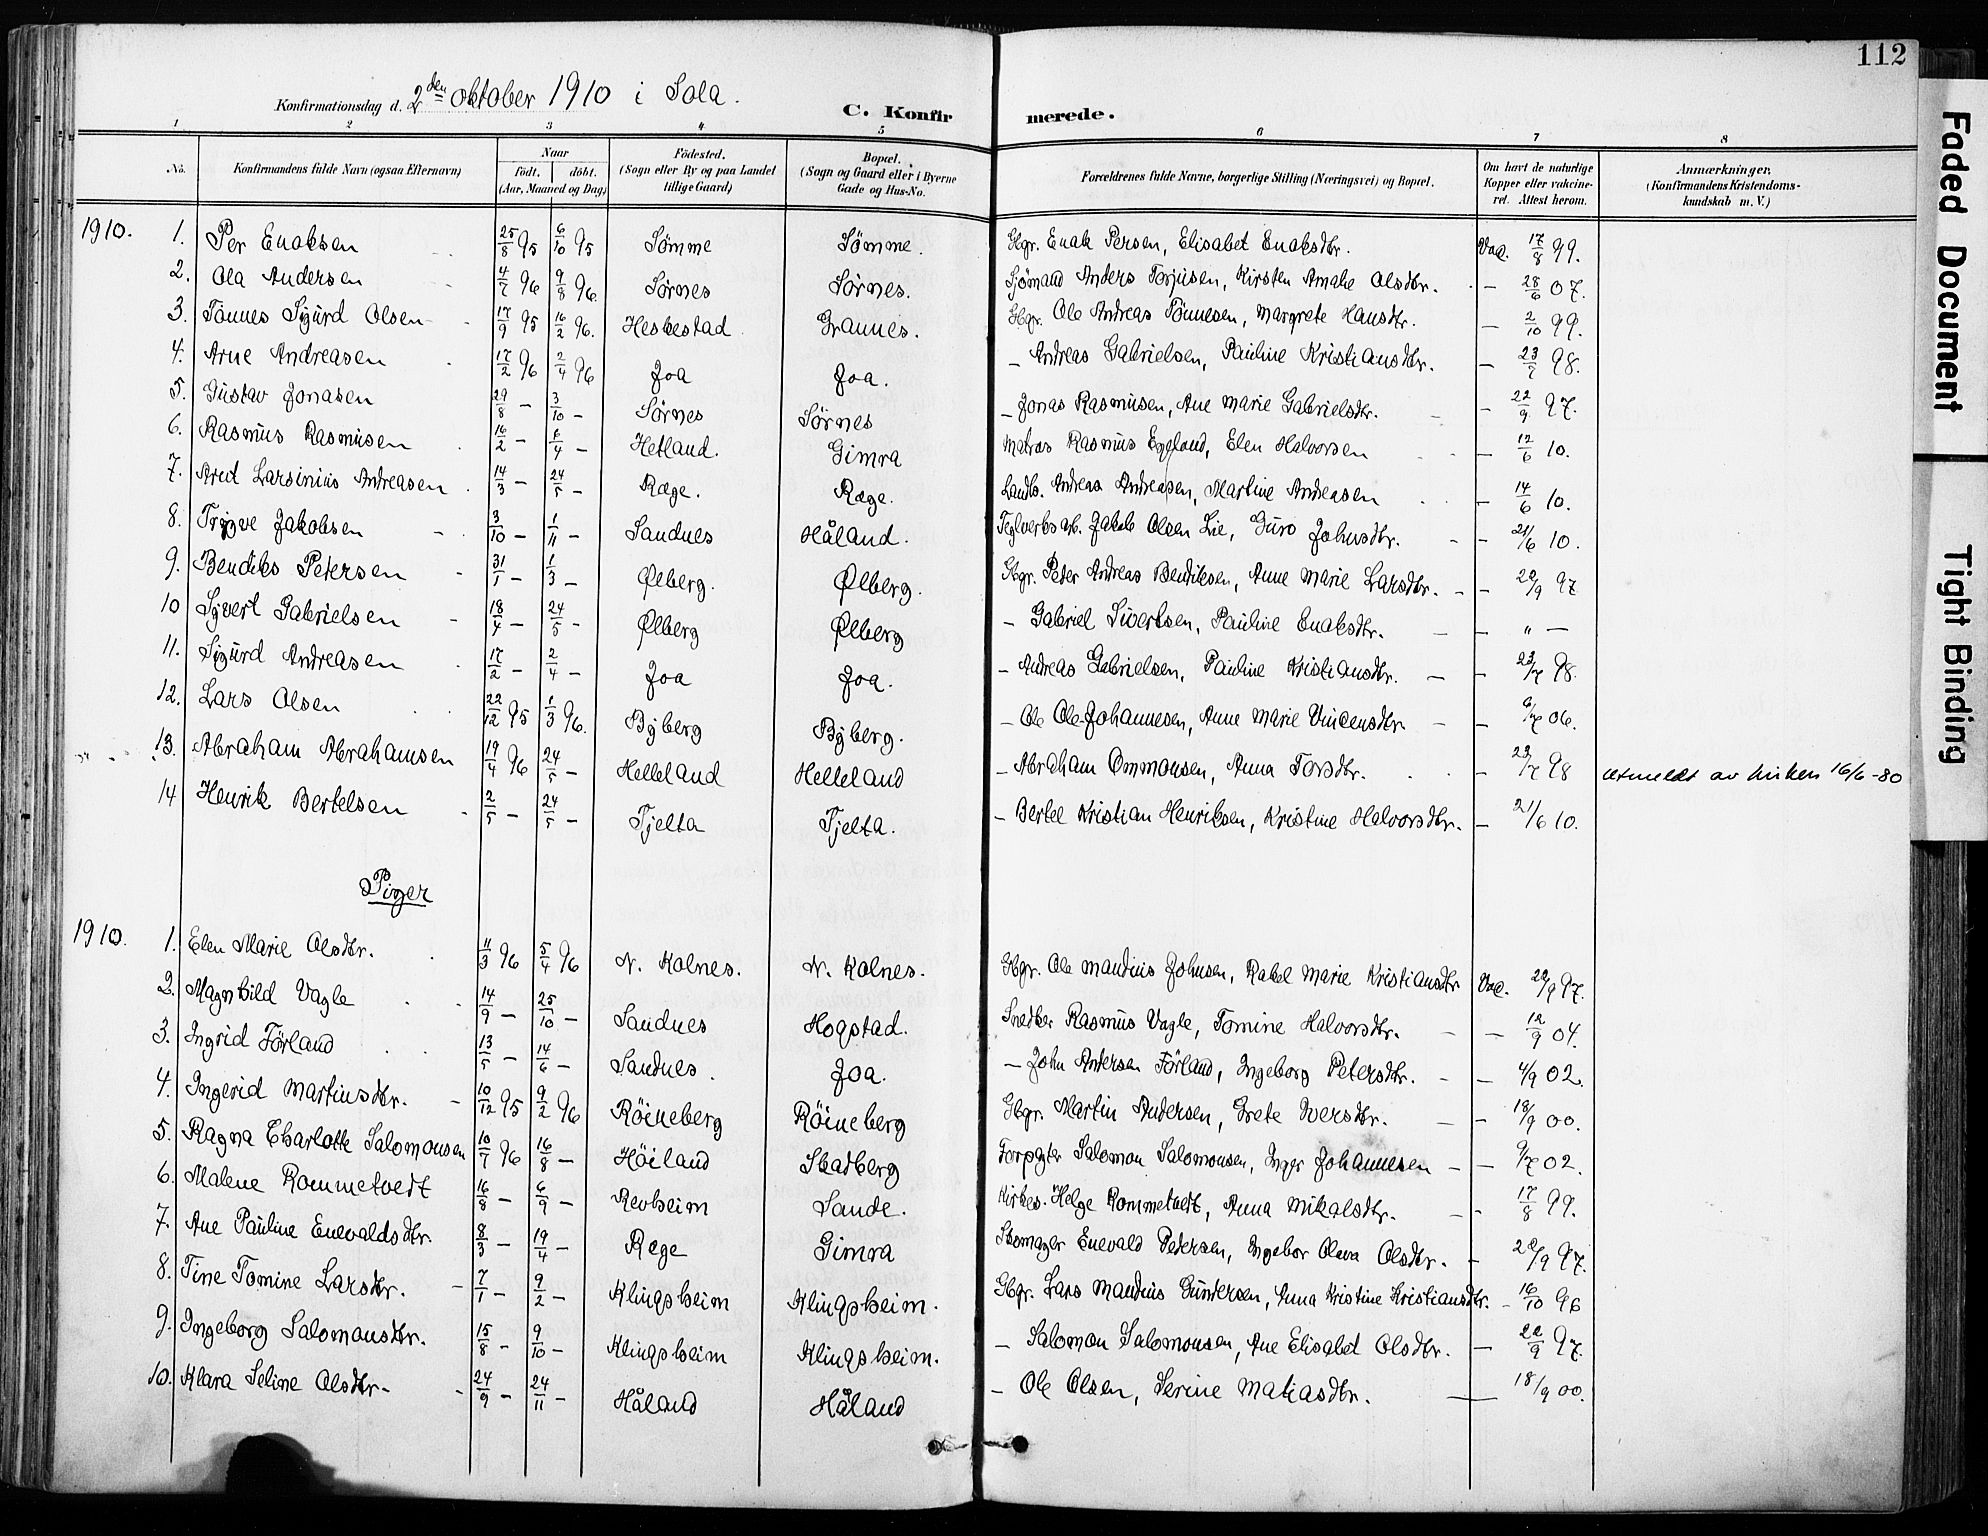 112
Faded Document
Tight Binding
Konfirmationsdag d. 2den oktober 1910 i Sola.
C. Konfirmerede.
1 2 3 4 5 6 7 8
No.
Konfirmandens fulde Navn (ogsaa Efternavn)
Naar født. døbt. (Aar, Maaned og Dag)
Fødested. (Sogn eller By og paa Landet tillige Gaard)
Bopæl. (Sogn og Gaard eller i Byerne Gade og Hus-No.
Forældrenes fulde Navne, borgerlige Stilling (Næringsvei) og Bopæl.
Om havt de naturlige Kopper eller vakcineret. Attest herom.
Anmærkninger. (Konfirmandens Kristendomskundskab m. V.)
1910. 1. Per Enoksen 25/8 95 6/10 95 Sømme Sømme. Gbgr. Enok Persen, Elisabet Enoksdtr. Vac. 17/8 99.
2. Ola Andersen 4/7 96 9/8 96. Sørnes Sørnes. Sjømand Anders Torjusen, Kirsten Amalie Olsdtr. - 28/6 07.
3. Tønnes Sigurd Olsen 17/9 95 16/2 96. Heskestad Grannes. Gbgr. Ole Andreas Tønnesen, Margrete Hansdtr. - 2/10 99.
4. Arne Andreasen 17/2 96 2/4 96 Joa Joa. - Andreas Gabrielsen, Pauline Kristiansdtr. - 23/7 98.
5. Gustav Jonasen 29/8 - 3/10 - Sørnes Sørnes - Jonas Rasmusen, Ane Marie Gabrielsdtr. - 22/9 97.
6. Rasmus Rasmusen 16/2 - 6/4 - Hetland. Gimra Matros Rasmus Egeland, Elen Halvorsen - 12/6 10.
7. Arut Larsinius Andreasen 14/3 - 24/5 - Ræge. Ræge. Landb. Andreas Andreasen, Martine Andreasen - 14/6 10.
8. Trygve Jakobsen 3/10 - 1/11 - Sandnes Håland. Teglverksarb. Jakob Olsen Lie, Guro Johnsdtr. - 21/6 10.
9. Bendiks Petersen 31/1 - 1/3 - Ølberg. Ølberg. Gbgr. Peter Andreas Bendiksen, Anne Marie Larsdtr. - 22/9 97
10 Syvert Gabrielsen 18/4 - 24/5 - Ølberg Ølberg - Gabriel Sivertsen, Pauline Enoksdtr. - " -
11. Sigurd Andreasen 17/2 - 2/4 - Joa Joa. - Andreas Gabrielsen, Pauline Kristiansdtr. - 23/7 98.
12. Lars Olsen 22/12 95 1/3 96. Byberg Byberg. - Ole Ole-Johannesen, Anne Marie Vincensdtr - 9/7 06.
13. Abraham Abrahamsen 19/4 96 24/5 - Helleland Helleland - Abraham Ommonsen, Anna Torsdtr. - 23/7 98 utmeldt av kirken 16/6-80
14 Henrik Bertelsen 2/5 - 24/5 - Tjelta Tjelta. - Bertel Kristian Henriksen, Kristine Halvorsdtr. - 21/6 10.
Piger
1910. 1. Elen Marie Olsdtr. 11/3 96 5/4 96 N. Kolnes. N. Kolnes. Gbgr. Ole Maudius Johnsen, Rakel Marie Kristiansdtr Vac. 22/9 97.
2. Magnhild Vagle 14/9 - 25/10 - Sandnes Hogstad. Snedker Rasmus Vagle, Tomine Halvorsdtr. - 12/9 04.
3. Ingrid Førland 13/5 - 14/6 - Sandnes. Joa. - John Andersen Førland, Ingeborg Petersdtr. - 4/9 02.
4. Ingerid Martinsdtr. 10/12 95 9/2 96 Röineberg Röineberg Gbgr. Martin Andersen, Grete Iversdtr. - 18/9 00.
5. Ragna Charlotte Salomonsen 10/7 96 16/8 - Höiland Skadberg Forpagter Salomon Salomonsen, Inger Johannesen - 9/7 02.
6. Malene Rommetvedt 16/8 - 6/9 - Revheim Sande. Kirkes. Helge Rommetvedt, Anna Mikalsdtr. - 17/8 99.
7. Ane Pauline Enevaldsdtr. 8/3 - 19/4 - Ræge Gimra Skomager Enevald Pedersen, Ingebor Olava Olsdtr. - 22/9 97.
8. Tine Tomine Larsdtr. 7/1 - 9/2 - Klingsheim Klingsheim. Gbgr. Lars Maudius Gundersen, Anna Kristine Kristiansdtr. - 16/10 96
9. Ingeborg Salomonsdtr. 15/8 - 9/10 - Klingsheim Klingsheim. - Salomon Salomonsen, Ane Elisabet Olsdtr. - 22/9 97.
10. Klara Seline Olsdtr. 24/9 - 24/11 - Håland Håland - Ole Olsen, Serine Matiasdtr. - 18/9 00.